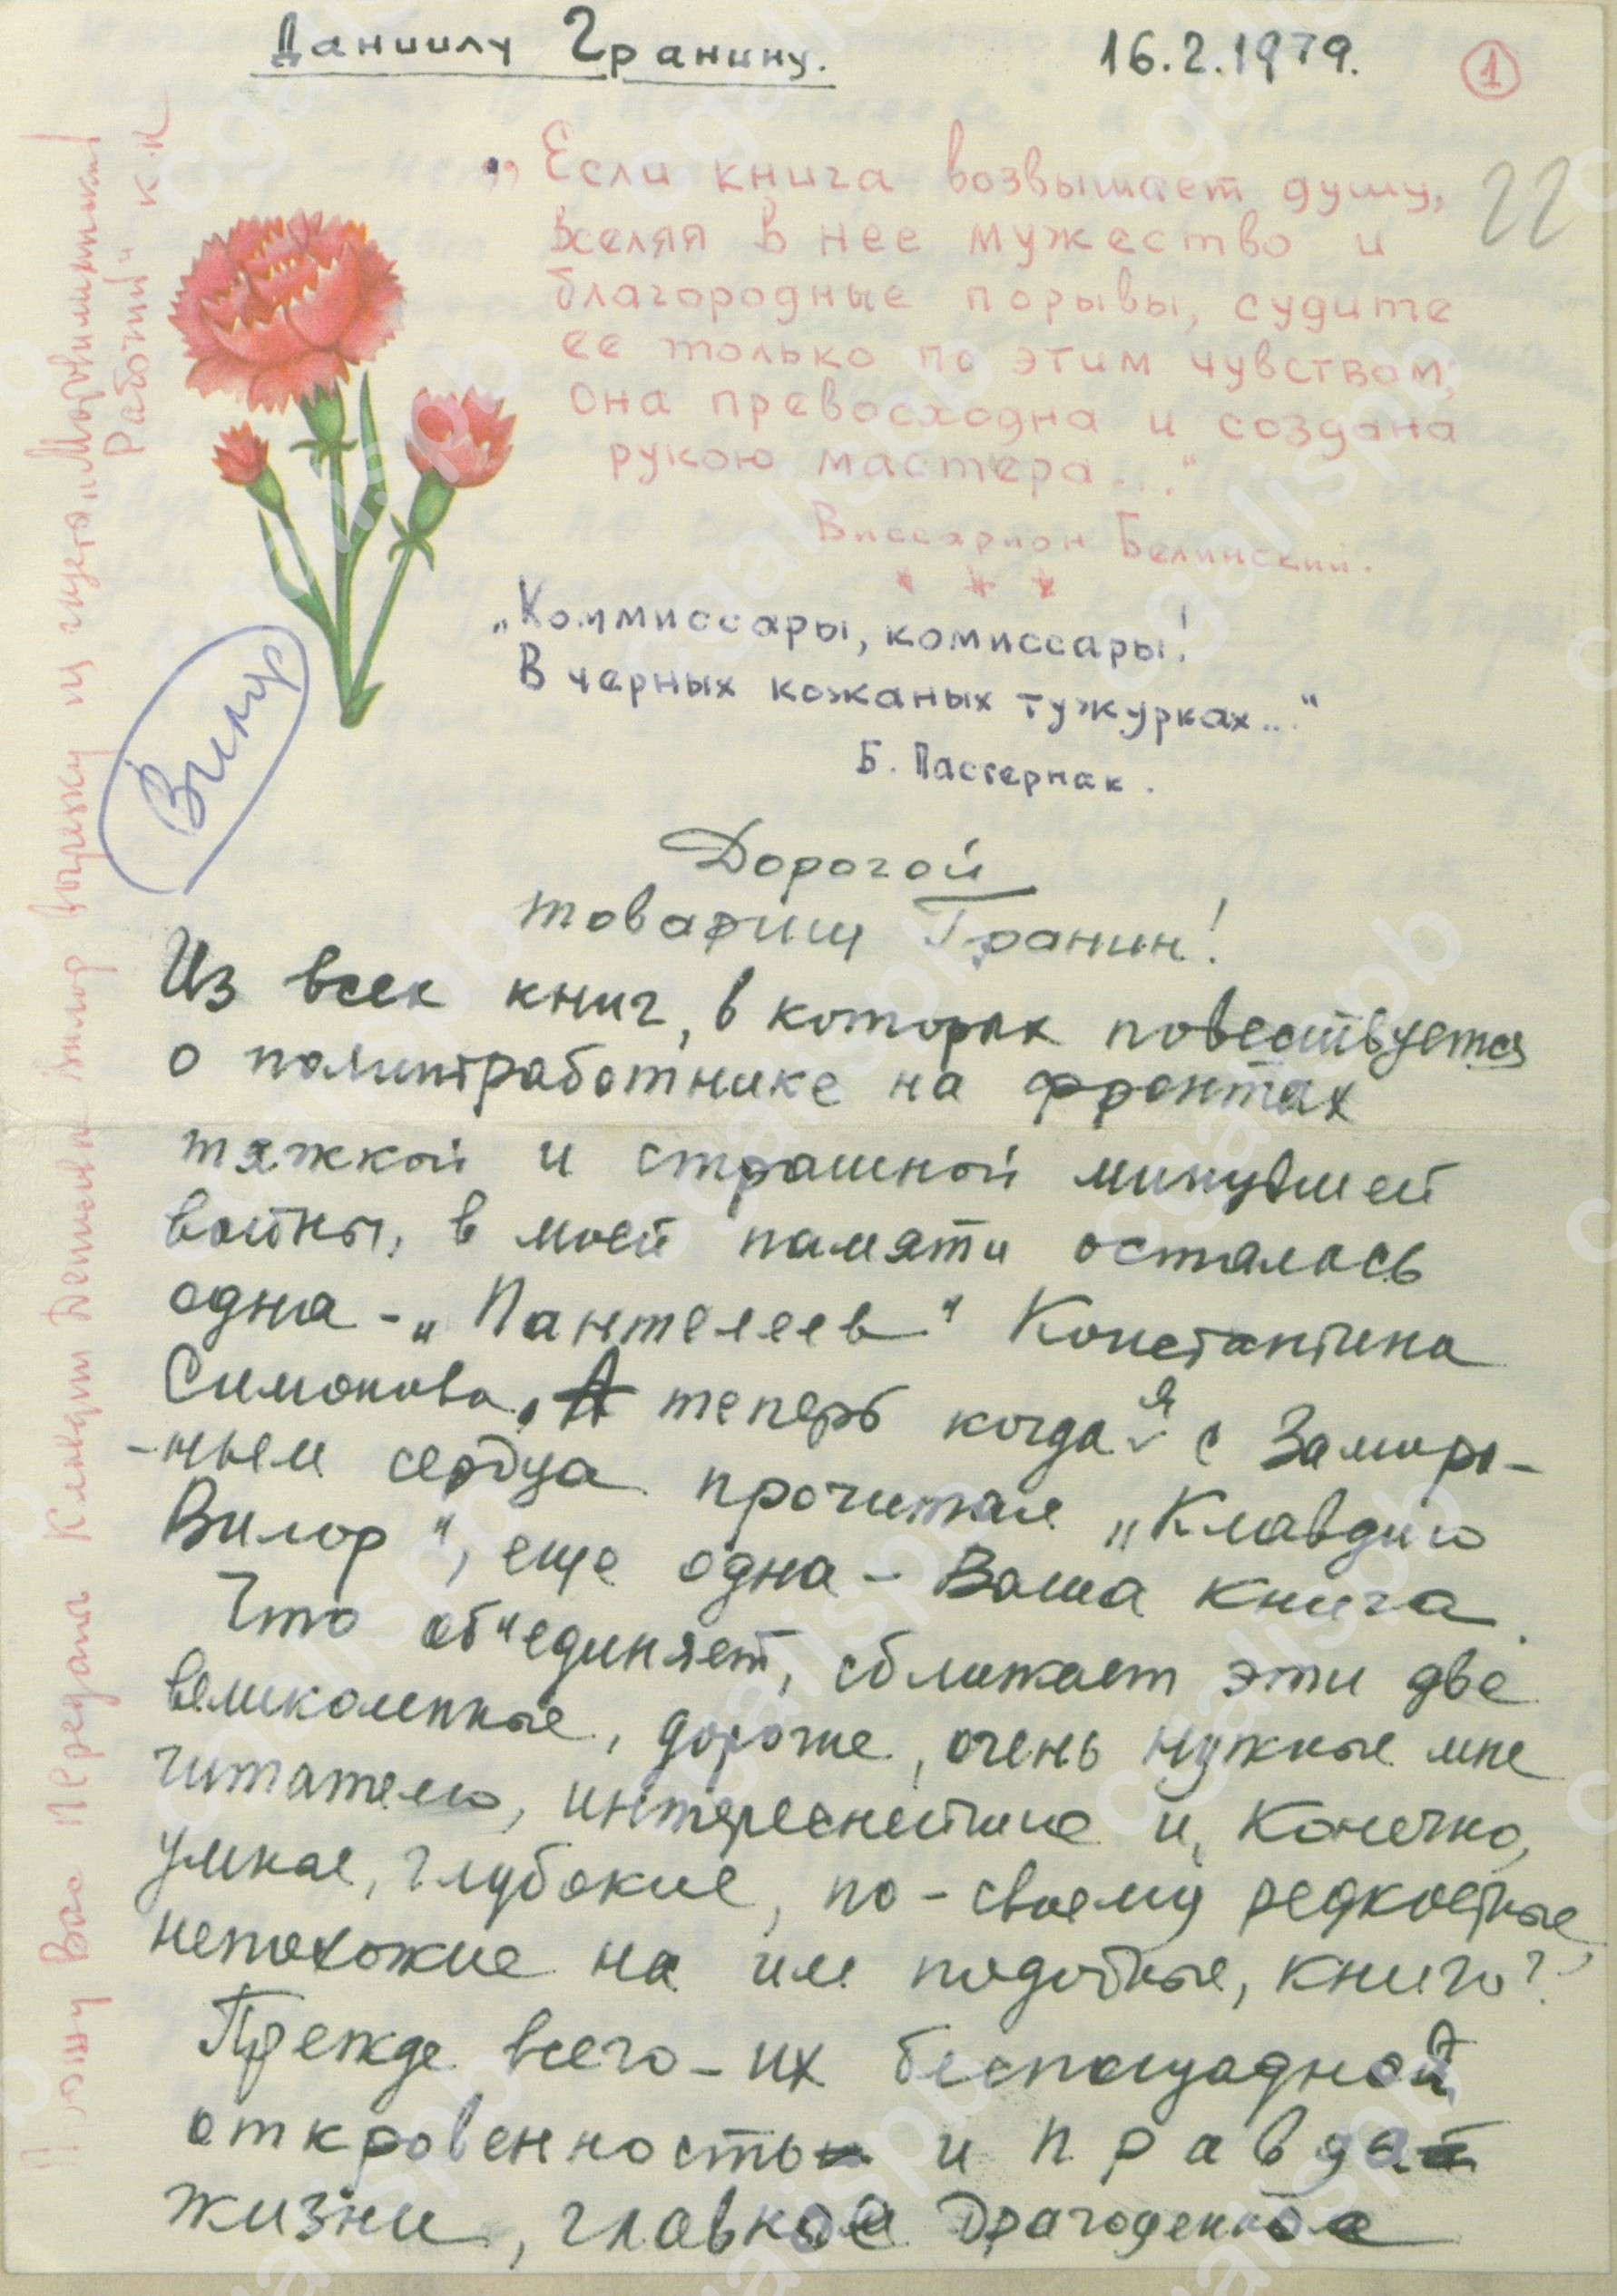 Даниилу Гранину.
16.2.1979.
1
22
„Если книга возвышает душу,
вселяя в нее мужество и
благородные порывы, судите
ее только по этим чувствам,
она превосходна и создана
рукою мастера..."
Виссарион Белинский.
* * *
„Коммиссары, комиссары!
В черных кожаных тужурках..."
Б. Пастернак.
Вилор
Дорогой
товарищ Гранин!
Из всех книг, в которых повествуется
о политработнике на фронтах
тяжкой и страшной минувшей
войны, в моей памяти осталась
одна - „Пантелеев" Константина
Симонова, А теперь когда я с замира-
-нием сердца прочитал „Клавдию
Вилор", еще одна - Ваша книга.
Что об"единяет, сближает эти две
великолепные, дорогие, очень нужные мне
читателю, интереснейшие и, конечно,
умные, глубокие, по-своему редкостные,
непохожие на им подобные, книги?
Прежде всего - их беспощадной
откровенность и правда
жизни, главное драгоценное
Прошу Вас передать Клавдии Денисовне Вилор вырезку из газеты „Магнитогорский
рабочий" К.К